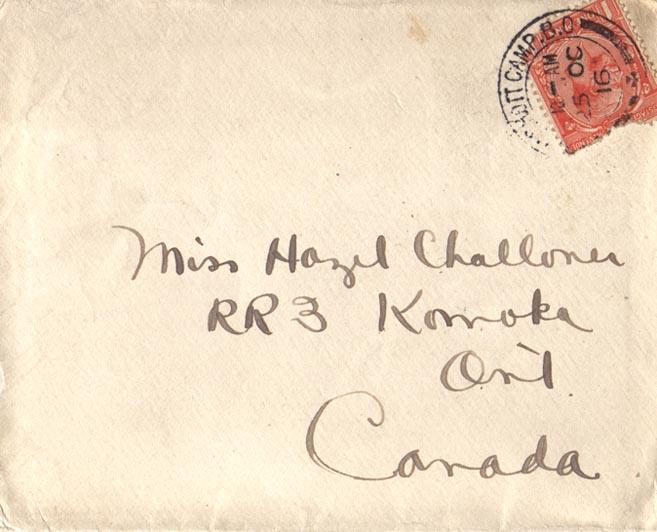 CAMP.B.O
AM
OC
16
Miss Hazel Challoner
RR3 Komoka
Ont.
Canada.